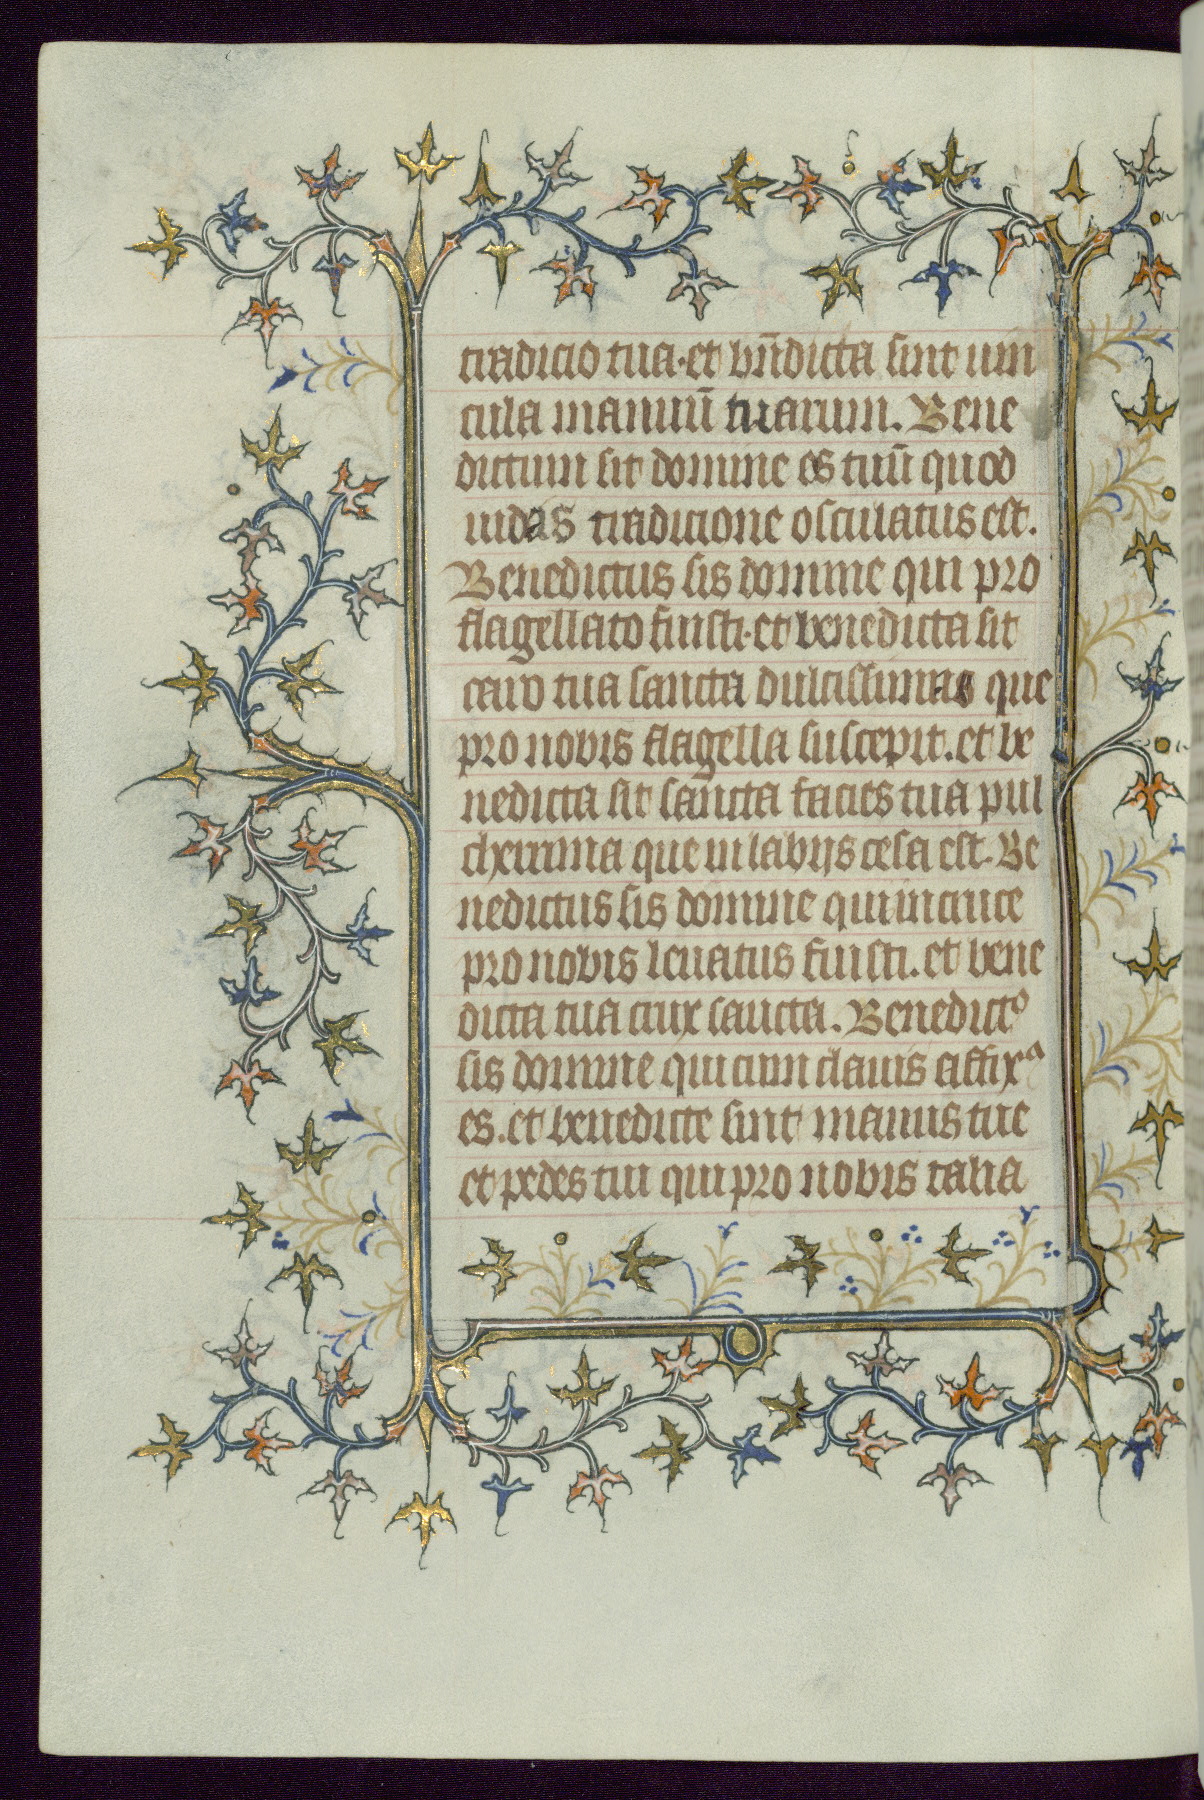 tradicio tua·et bñdicta sint uin
cula manuū tuarum. Bene
dictum sit domine os tuū quod
iudas tradicione osculatus est.
Benedictus sis domine qui pro
flagellato fuisti·et benedicta sit
caro tua sancta dulcissima que
pro nobis flagella suscepit.et be
nedicta sit sancta facies tua pul
cherrima que in labijs cesa est. Be
nedictus sis domine qui in cruce
pro nobis leuatus fuisti. et bene
dicta tua crux sancta. Benedictꝰ
sis domine qui cum clauis affixꝰ
es.et benedicte sint manus tue
et pedes tui qui pro nobis talia